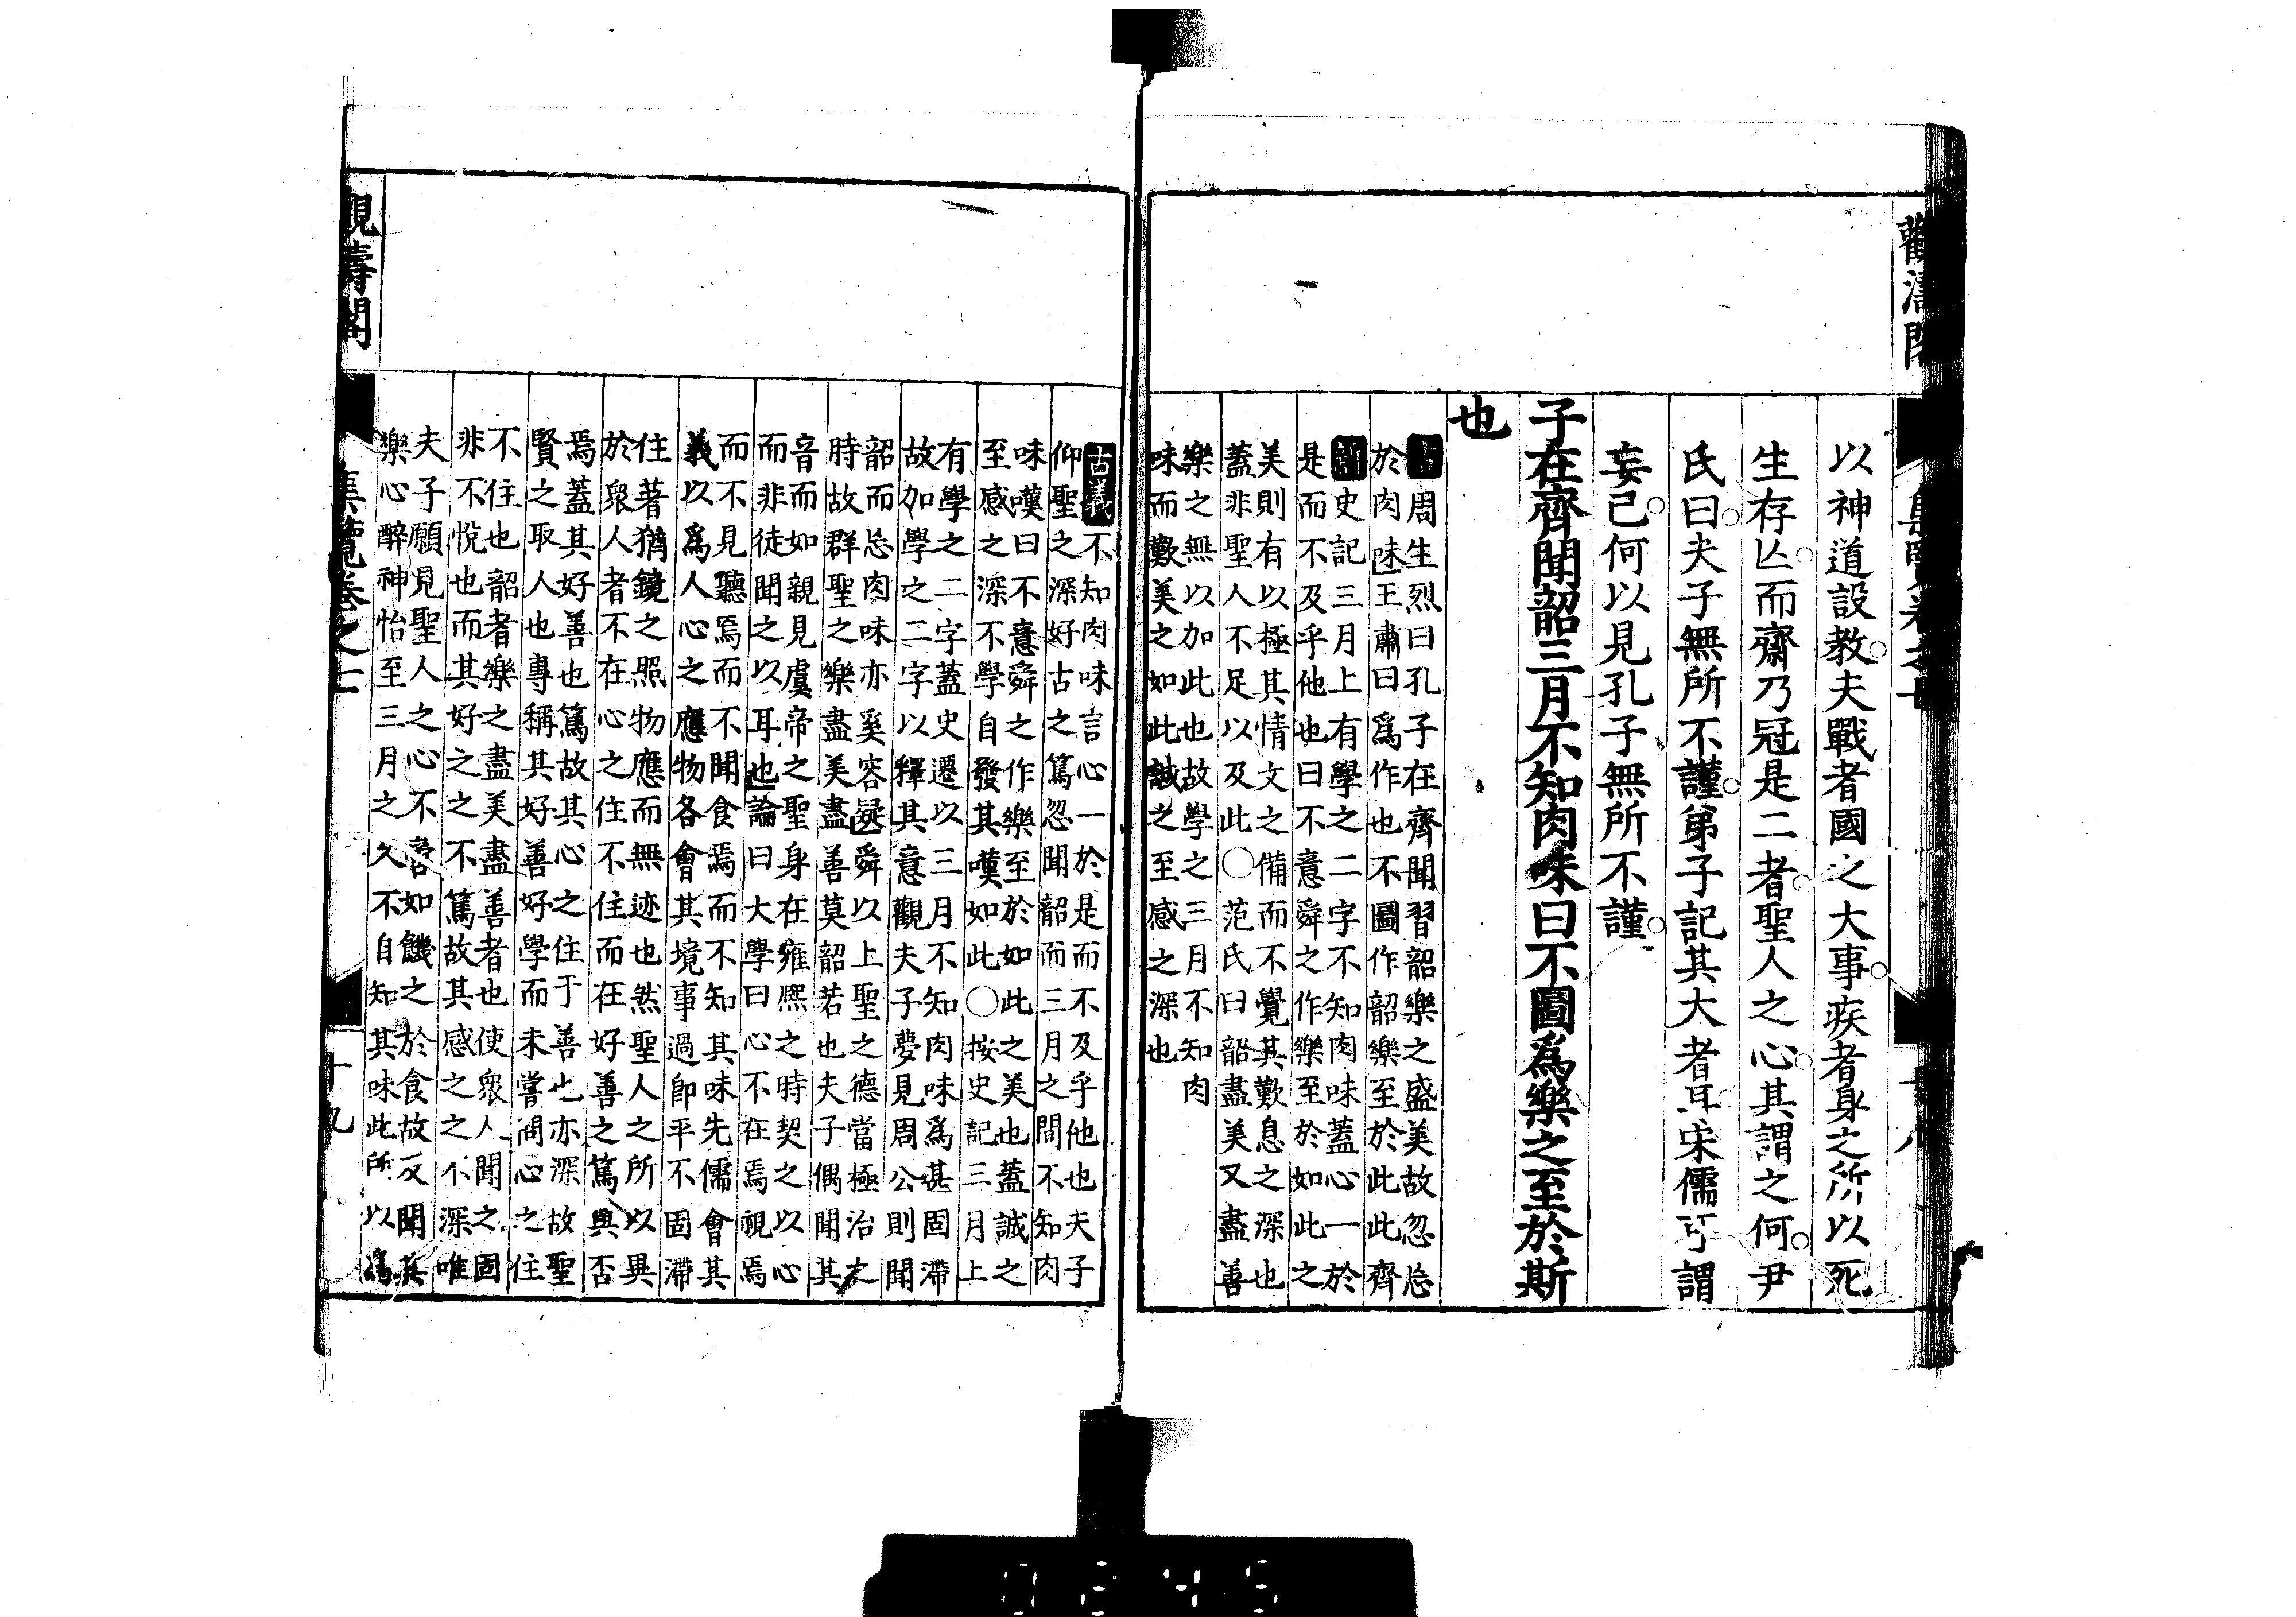 以神道設教夫戰者國之大事疾者身之所以死
生存亾而齋乃冠是二者聖人之心其謂之何尹
氏曰夫子無所不謹弟子記其大者耳宋儒可謂
妄已何以見孔子無所不謹
子在齊聞韶三月不知肉味曰不圖爲樂之至於斯
也
古周生烈曰孔子在齊聞習韶樂之盛美故忽忘
於肉味王肅曰爲作也不圖作韶樂至於此此齊
新史記三月上有學之二字不知肉味蓋心一於
是而不及乎他也曰不意舜之作樂至於如此之
美則有以極其情文之備而不覺其歎息之深也
蓋非聖人不足以及此○范氏曰韶盡美又盡善
樂之無以加此也故學之三月不知肉
味而歎美之如此誠之至感之深也
古義不知肉味言心一於是而不及乎他也夫子
仰聖之深好古之篤忽聞韶而三月之間不知肉
味嘆曰不意舜之作樂至於如此之美也蓋誠之
至感之深不學自發其嘆如此○按史記三月上
有學之二字蓋史遷以三月不知肉味爲甚固滯
故加學之二字以釋其意觀夫子夢見周公則聞
韶而忘肉味亦奚容疑舜以上聖之德當極治之
時故群聖之樂盡美盡善莫韶若也夫子偶聞其
音而如親見虞帝之聖身在雍熈之時契之以心
而非徒聞之以耳也論曰大學曰心不在焉視焉
而不見聽焉而不聞食焉而不知其味先儒會其
義以爲人心之應物各會其境事過即平不固滯
住著猶鏡之照物應而無迹也然聖人之所以異
於衆人者不在心之住不住而在好善之篤與否
焉蓋其好善也篤故其心之住于善也亦深故聖
賢之取人也專稱其好善好學而未嘗問心之住
不住也韶者樂之盡美盡善者也使衆人聞之固
非不悅也而其好之之不篤故其感之之不深唯
夫子願見聖人之心不啻如饑之於食故反聞其
樂心醉神怡至三月之久不自知其味此所以爲
觀濤閣
集覽卷之七
十八
觀濤閣
集覽卷之七
十九
0245